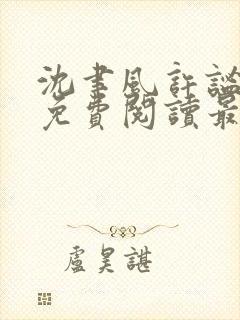 沈書風許謐
免費閱讀最
盧昊諶